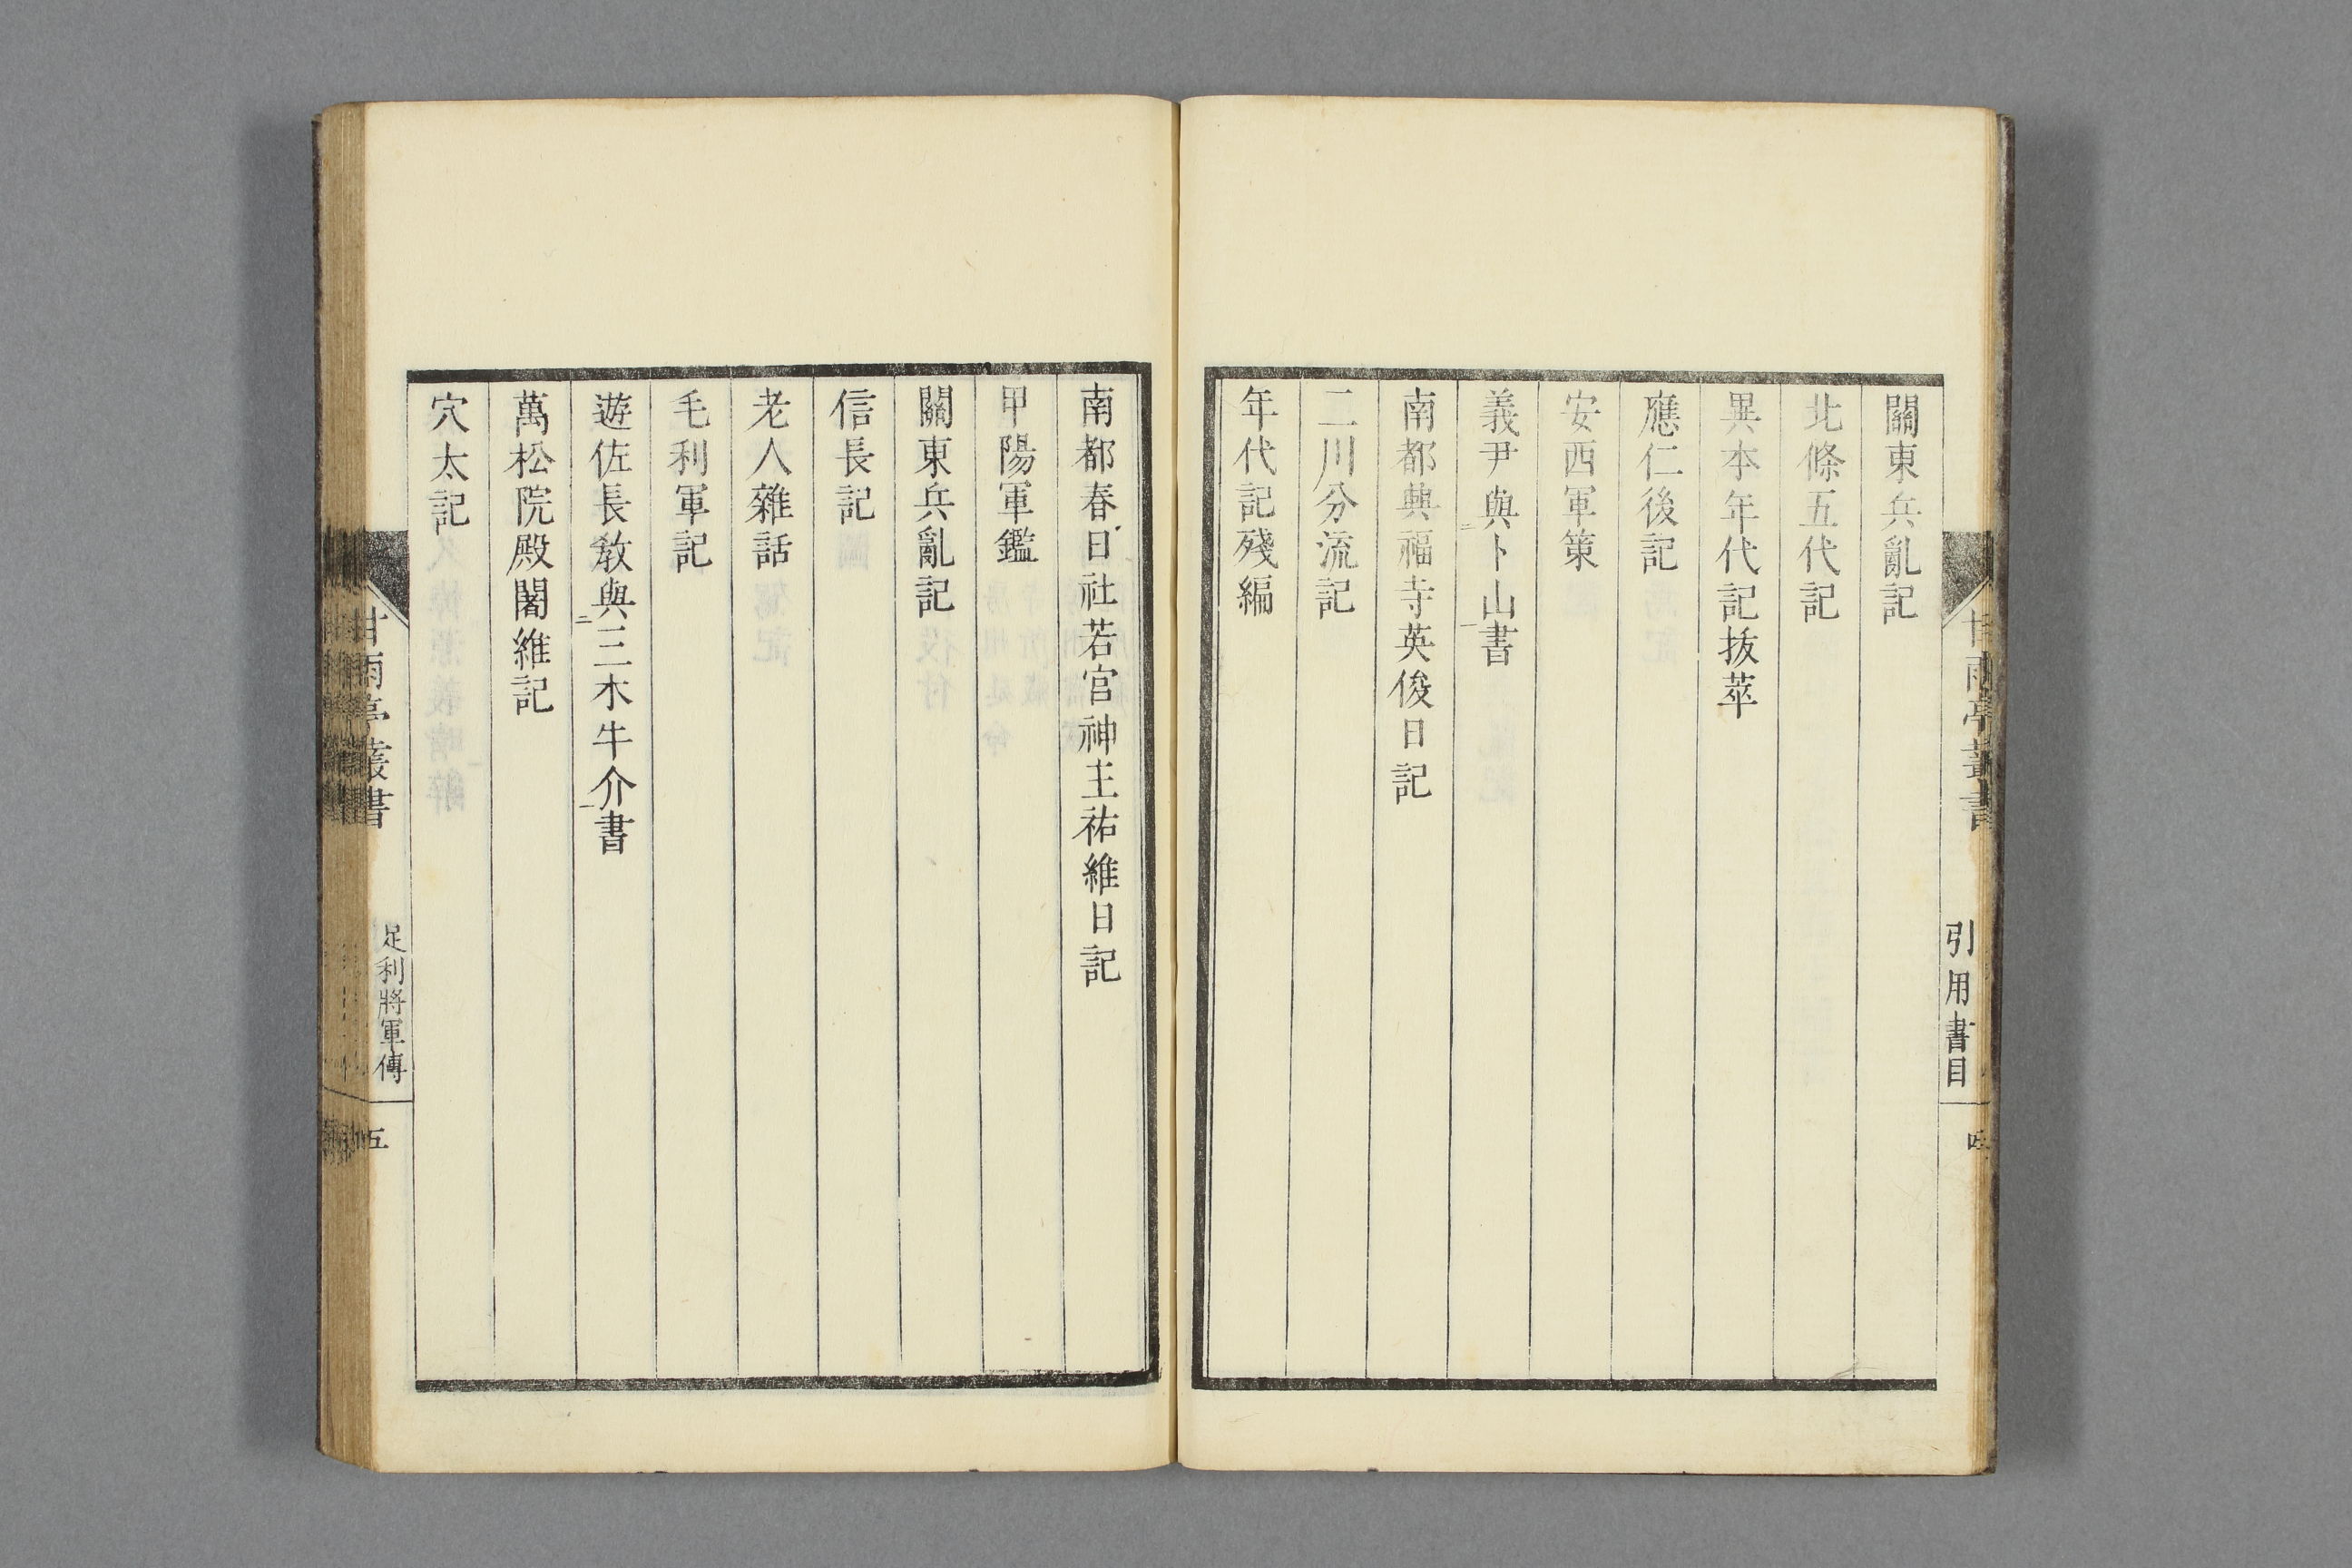 關東兵亂記
北條五代記
異本年代記拔萃
應仁後記
安西軍策
義尹與卜山書
南都興福寺英俊日記
二川分流記
年代記殘編
甘雨亭叢書
引用書目
四
南都春日社若宮神主祐維日記
甲陽軍鑑
關東兵亂記
信長記
老人雜話
毛利軍記
遊佐長敎與三木牛介書
萬松院殿闍維記
穴太記
甘雨亭叢書
足利將軍傳
五